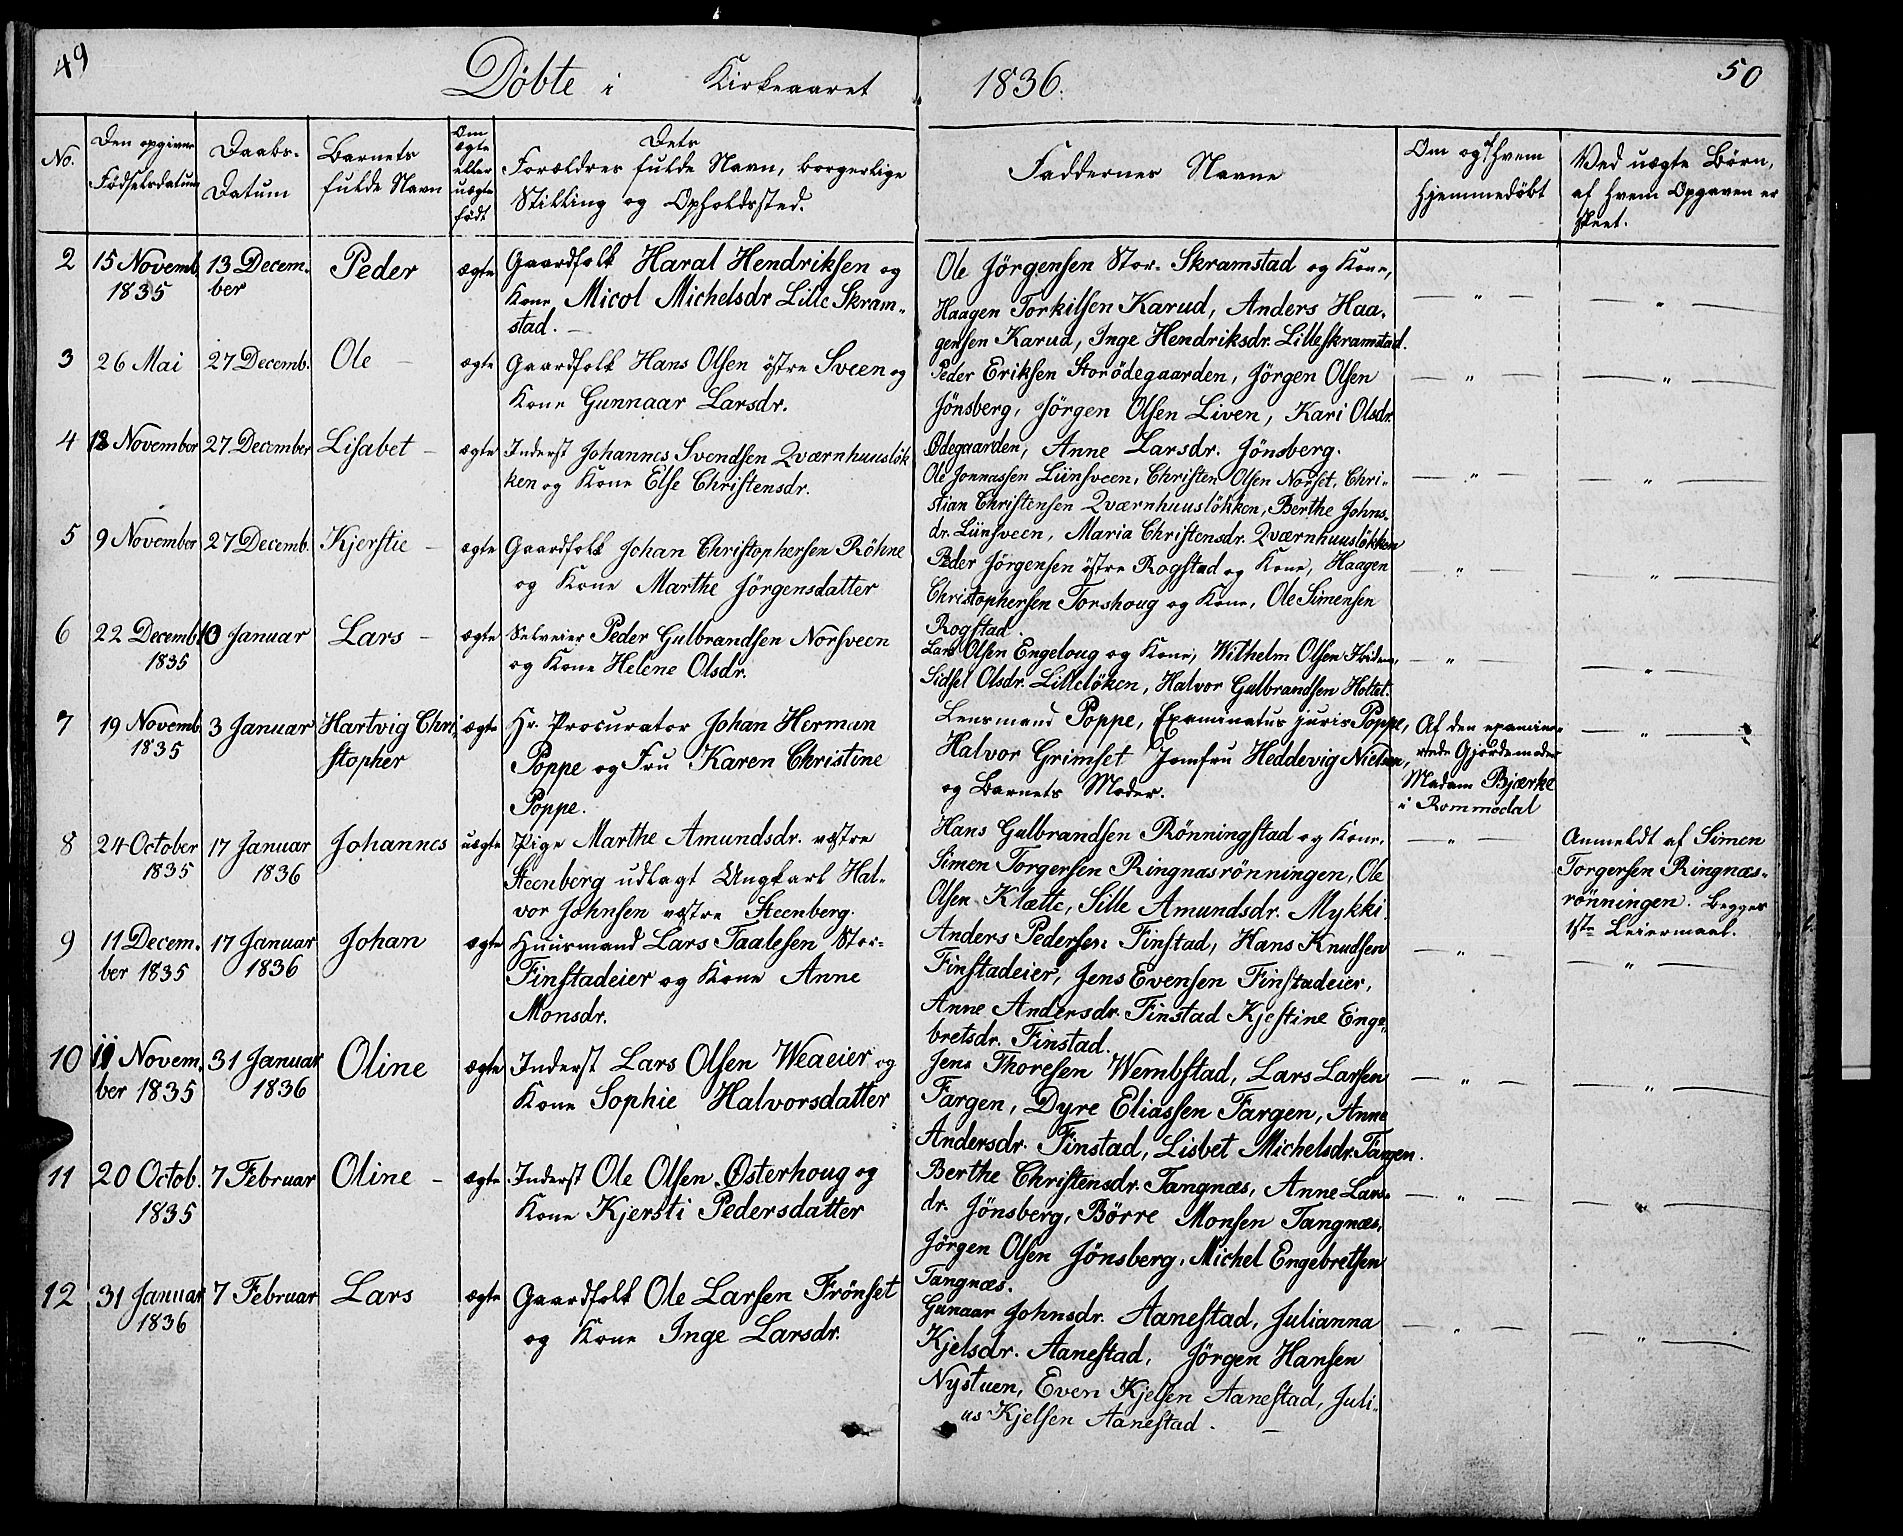 49
50
Döbte i Kirkeaaret 1836.
No.
Den opgivne
Födselsdatum
Daabs-
Datum
Barnets
fulde Navn
Om
ægte
eller
uægte
födt
Dets
Forældres fulde Navn, borgerlige
Stilling og Opholdssted.
Faddernes Navne
Om og af hvem
hjemmedöbt
Ved uægte Börn,
af hvem Opgaven er
skeet.
2 15 Novemb. 13 Decem- Peder ægte Gaardfolk Haral Hendriksen og
1835 ber Kone Micol Michelsdr Lille Skram-
stad. —
Ole Jörgensen Stor-Skramstad og Kone,
Haagen Torkilsen Karud, Anders Haa-
gensen Karud, Inge Hendriksdr. Lilleskramstad.
— " — — " —
3 26 Mai 27 Decemb. Ole — ægte Gaardfolk Hans Olsen östre Sveen og
Kone Gunnaar Larsdr.
Peder Eriksen Storödegaarden, Jörgen Olsen
Jönsberg, Jörgen Olsen Liven, Kari Olsdr.
Ödegaarden, Anne Larsdr. Jönsberg.
— " — — " —
4 18 November 27 December Lisabet — ægte Inderst Johannes Svendsen Qværnhuuslök
ken og Kone Else Christensdr.
Ole Jonnassen Lünsveen, Christen Olsen Norset, Chri-
stian Christensen Qværnhuuslökken, Berthe Johns-
dr. Lünsveen, Maria Christensdr. Qværnhuuslökken
— " — — " —
5 9 November 27 Decemb. Kjerstie — ægte Gaardfolk Johan Christophersen Röhne
og Kone Marthe Jörgensdatter
Peder Jörgensen östre Rogstad og Kone, Haagen
Christophersen Torshoug og Kone, Ole Simensen
Rogstad.
— " — — " —
6 22 Decemb. 10 Januar Lars — ægte Selveier Peder Gulbrandsen Norsveen
1835 og Kone Helene Olsdr.
Lars Olsen Engeloug og Kone, Wilhelm Olsen
Sidsel Olsdr. Lillelöken, Halvor Gulbrandsen Holtet.
— " — — " —
7 19 Novemb. 3 Januar Hartvig Chri ægte Hr. Procurator Johan Herman
1835 stopher Poppe og Fru Karen Christine
Poppe.
Lensmand Poppe, Examinatus juris Poppe,
Halvor Grimset Jomfru Heddevig Nielsen,
og Barnets Moder.
Af den examine-
rede Gjordemoder
Madam Bjerke
i Rommedal
— " —
8 24 October 17 Januar Johannes uægte Pige Marthe Amundsdr. vestre
1835 1836 Steenberg udlagt Ungkarl Hal-
vor Johnsen vestre Steenberg.
Hans Gulbrandsen Rönningstad og Kone.
Simen Torgersen Ringnæsrönningen, Ole
Olsen Klætte, Sille Amundsdr. Mykki.
— " —
Anmeldt af Simen
Torgersen Ringnæs-
rönningen. Begges
1ste Leiermaal.
9 11 Decem- 17 Januar Johan ægte Huusmand Lars Taalesen Stor-
ber 1835 1836 Finstadeier og Kone Anne
Monsdr.
Anders Pedersen Finstad, Hans Knudsen
Finstadeier, Jens Evensen Finstadeier,
Anne Andersdr. Finstad Kjestine Enge-
bretsdr. Finstad.
— " — — " —
10 11 Novem- 31 Januar Oline ægte Inderst Lars Olsen Weaeier og
ber 1835 1836 Kone Sophie Halvorsdatter
Jens Thoresen Wembstad, Lars Larsen
Fargen, Dyre Eliassen Fargen, Anne
Andersdr. Finstad, Lisbet Michelsdr. Fargen.
— " — — " —
11 20 Octob. 7 Februar Oline — ægte Inderst Ole Olsen Österhoug og
1835 Kone Kjersti Pedersdatter
Berthe Christensdr. Tangnæs, Anne Lars-
dr. Jönsberg, Börre Monsen Tangnæs,
Jörgen Olsen Jönsberg, Michel Engebretsen
Tangnæs.
— " — — " —
12 31 Januar 7 Februar Lars ægte Gaardfolk Ole Larsen Frönset
1836 og Kone Inge Larsdr.
Gunaar Johnsdr. Aanestad, Julianna
Kjelsdr. Aanestad, Jörgen Hansen
Nystuen, Even Kjelsen Aanestad, Juli-
us Kjelsen Aanestad. —
— " — — " —